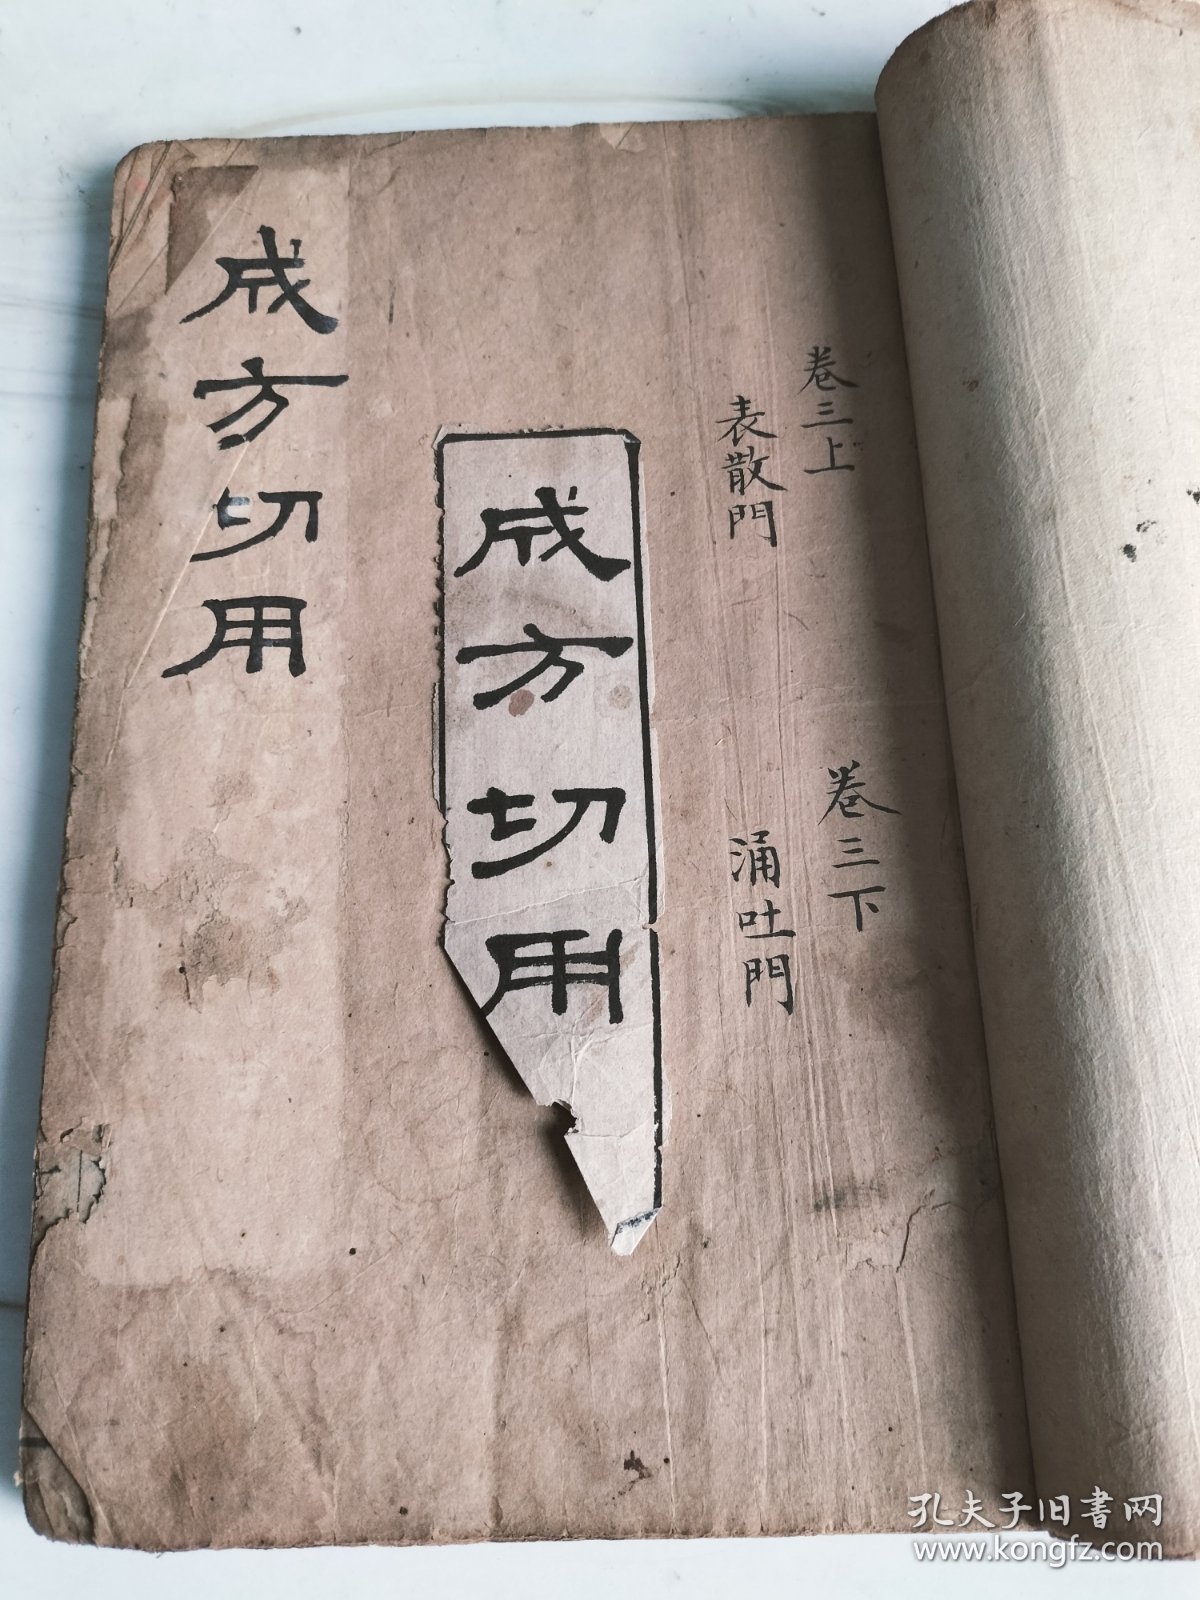 卷三上
表散門
卷三下
涌吐門
成方切用
成方切用
孔夫子旧書网
www.kongfz.com